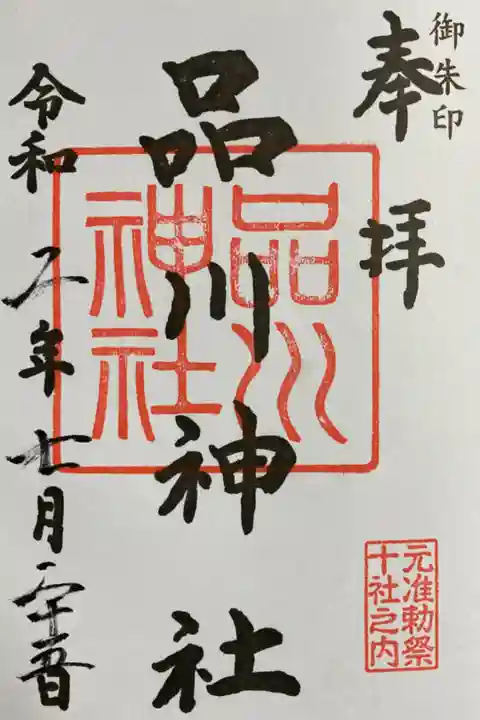 御朱印
奉拝
品川神社
品川
神社
元准勅祭
十社之内
令和二年七月二十五日